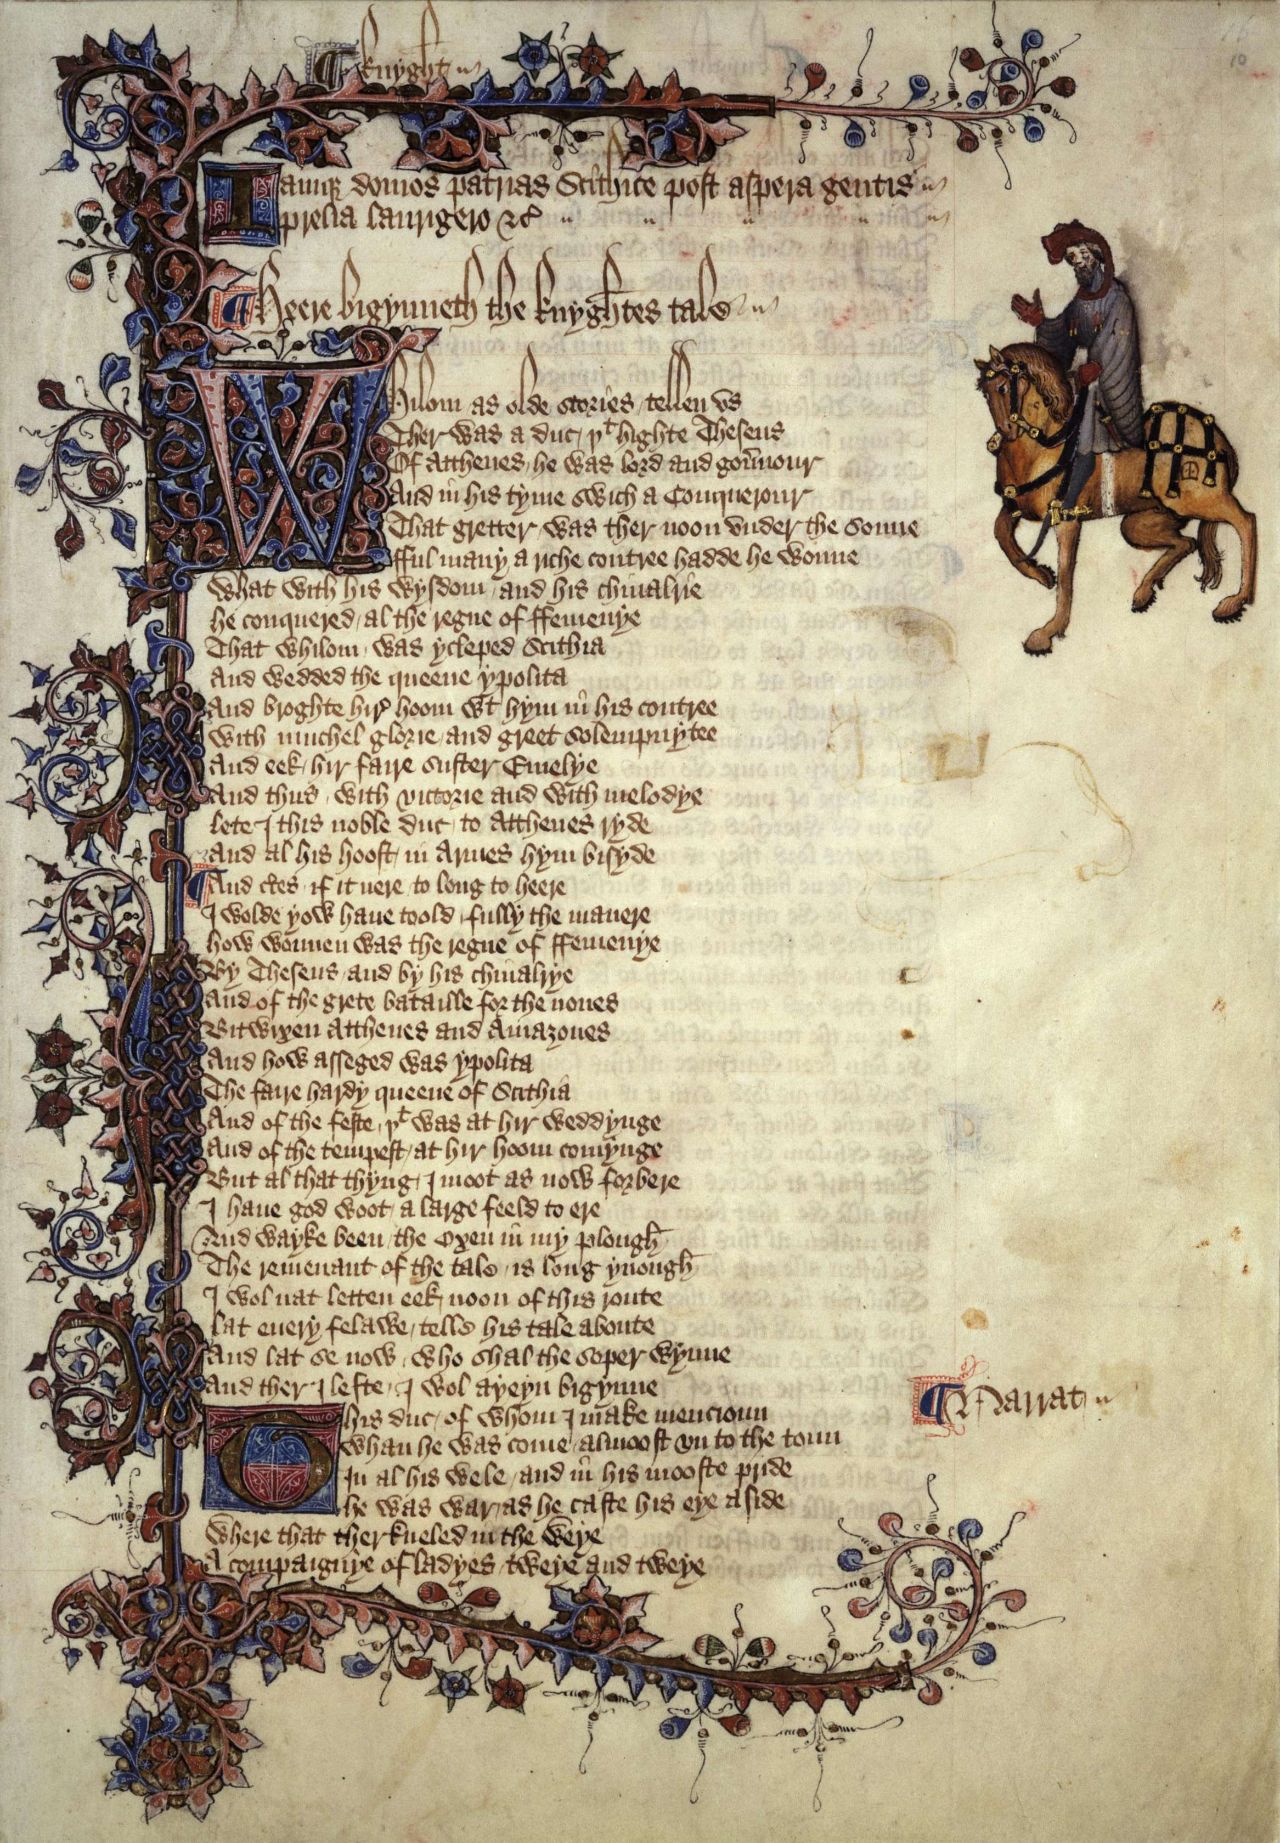 ¶ Knyght
Iamque domos patrias Scithice post aspera gentis
prelia laurigero &c
¶ Heere bigynneth the knyghtes tale
Whilom as olde stories tellen vs
Ther was a duc þt highte Theseus
Of Atthenes he was lord and gouernour
And in his tyme swich a Conquerour
That gretter was ther noon vnder the sonne
fful many a riche contree hadde he wonne
What with his wysdom and his chiualrie
he conquered al the regne of ffemenye
That whilom was ycleped Scithia
And wedded the queene ypolita
And broghte hir hoom wt hym in his contree
With muchel glorie and greet solempnytee
And eek hir faire suster Emelye
And thus with victorie and with melodye
lete I this noble duc to Atthenes ryde
And al his hoost in Armes hym bisyde
¶ And ctes if it nere to long to heere
I wolde yow haue toold fully the manere
how wonnen was the regne of ffemenye
By Theseus and by his chiualrye
And of the grete bataille for the nones
Bitwixen Atthenes and Amazones
And how asseged was ypolita
The faire hardy queene of Scithia
And of the feste þt was at hir weddynge
And of the tempest at hir hoom comynge
But al that thyng I moot as now forbere
I haue god woot a large feeld to ere
And wayke been the Oxen in my plough
The remenant of the tale is long ynough
I wol nat letten eek noon of this route
lat euery felawe telle his tale aboute
And lat se now who shal the soper wynne
And ther I lefte I wol ayeyn bigynne
This duc of whom I make mencioun ¶ Narrat
Whan he was come almoost vn to the toun
In al his wele and in his mooste pride
he was war as he caste his eye aside
Where that ther kneled in the weye
A compaignye of ladyes tweye and tweye
10